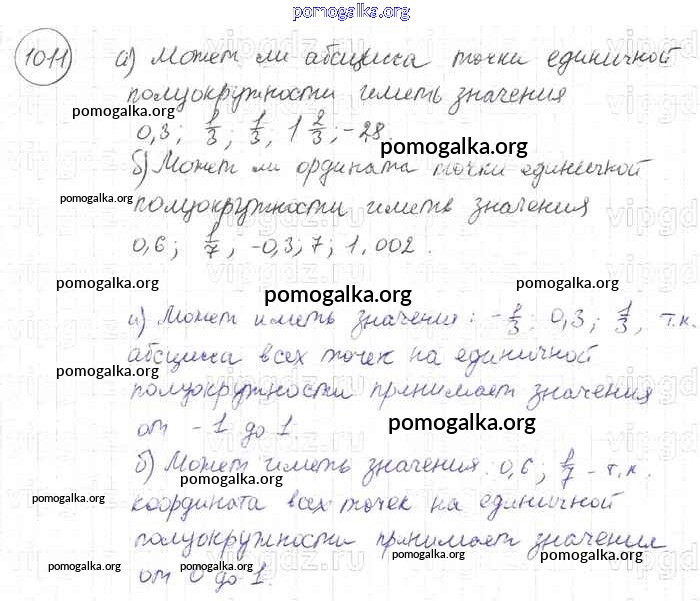 pomogalka.org
1011 а) Может ли абсцисса точки единичной
полуокружности иметь значения
pomogalka.org
0,3; 1/3; 1/3; 1 2/3; -28.
pomogalka.org
б) Может ли ордината точки единичной
pomogalka.org
полуокружности иметь значения
0,6; 1/7; -0,3; 7; 1,002.
pomogalka.org pomogalka.org pomogalka.org
а) Может иметь значения: -1/3; 0,3; 1/3, т.к.
абсцисса всех точек на единичной
pomogalka.org
полуокружности принимает значения
от -1 до 1. pomogalka.org
б) Может иметь значения: 0,6; 1/7 - т.к.
pomogalka.org
pomogalka.org
координата всех точек на единичной
полуокружности принимает значения
pomogalka.org pomogalka.org pomogalka.org
от 0 до 1.